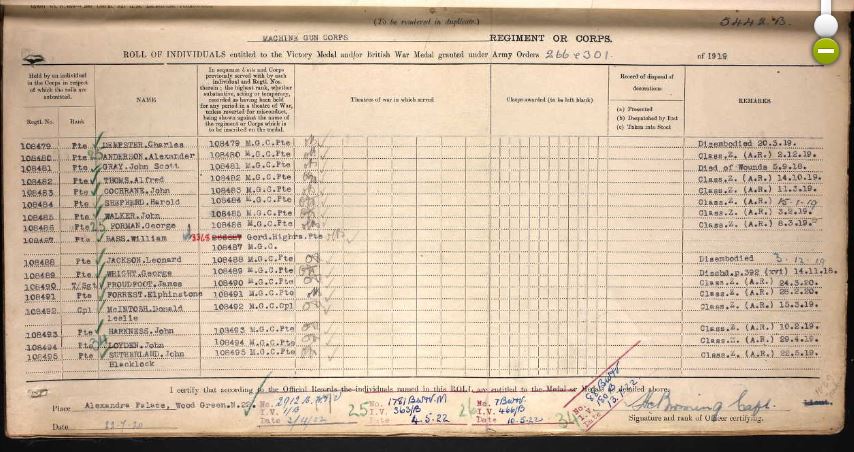 (To be rendered in duplicate.)
5442B.
MACHINE GUN CORPS REGIMENT OR CORPS.
ROLL OF INDIVIDUALS entitled to the Victory Medal and/or British War Medal granted under Army Orders 266 & 301. of 1919
Held by an individual in the Corps in respect of which the rolls are submitted.
Regtl. No. Rank
NAME
In sequence Units and Corps previously served with by each individual and Regtl. Nos. therein; the highest rank, whether substantive, acting or temporary, recorded as having been held for any period in a theatre of War, unless reverted for misconduct, being shown against the name of the regiment or Corps which is to be inscribed on the medal.
Theatres of war in which served.
Clasps awarded (to be left blank)
Record of disposal of decorations
(a) Presented
(b) Despatched by Post
(c) Taken into Stock
REMARKS
108479 Pte DEMPSTER.Charles 108479 M.G.C.Pte Disembodied 20.3.19.
108480 Pte ANDERSON.Alexander 108480 M.G.C.Pte Class.Z. (A.R.) 2.12.19.
108481 Pte GRAY.John Scott 108481 M.G.C.Pte Died of Wounds 5.9.18.
108482 Pte THOMS.Alfred 108482 M.G.C.Pte Class.Z. (A.R.) 14.10.19.
108483 Pte COCHRANE.John 108483 M.G.C.Pte Class.Z. (A.R.) 11.3.19.
108484 Pte SHEPHERD.Harold 108484 M.G.C.Pte Class.Z. (A.R.)
108485 Pte WALKER.John 108485 M.G.C.Pte Class.Z. (A.R.) 3.2.19.
108486 Pte FORMAN.George 108486 M.G.C.Pte Class.Z. (A.R.) 8.3.19.
108487 Pte BASS.William Gord.Highrs.Pte
108487 M.G.C.
108488 Pte JACKSON.Leonard 108488 M.G.C.Pte Disembodied
108489 Pte WRIGHT.George 108489 M.G.C.Pte Dischd.p.392 (xvi) 14.11.18.
108490 T/Sgt PROUDFOOT.James 108490 M.G.C.Pte Class.Z. (A.R.) 24.3.20.
108491 Pte FORREST.Elphinstone 108491 M.G.C.Pte Class.Z. (A.R.) 28.2.20.
108492 Cpl McINTOSH.Donald 108492 M.G.C.Cpl Class.Z. (A.R.) 15.3.19.
Leslie
108493 Pte HARKNESS.John 108493 M.G.C.Pte Class.Z. (A.R.) 10.2.19.
108494 Pte LOYDEN.John 108494 M.G.C.Pte Class.Z. (A.R.) 29.4.19.
108495 Pte SUTHERLAND.John 108495 M.G.C.Pte Class.Z. (A.R.) 22.5.19.
Blacklock
I certify that according to the Official Records the individuals named in this ROLL are entitled to the Medal or Medals as detailed above.
Place Alexandra Palace, Wood Green.N.22.
Date
No.
I.V.
Date
25
No.
I.V. 363/B
Date 4.5.22
No.
I.V. 466/B
Date 10.5.22
Signature and rank of Officer certifying.